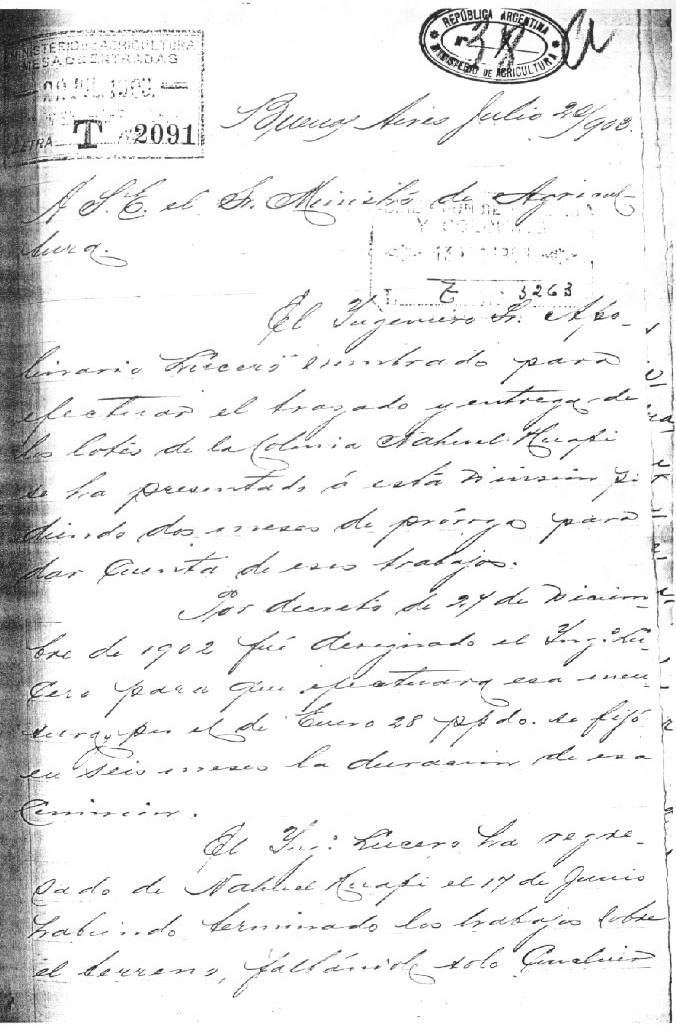 REPÚBLICA ARGENTINA
38
MINISTERIO DE AGRICULTURA
MINISTERIO DE AGRICULTURA
MESA DE ENTRADAS
LETRA T 2091
Buenos Aires Julio 20/903.
A S.E. el Sr. Ministro de Agricul-
tura.
Y COLONIAS
L 3263
El Ingeniero Sr. Apo-
linario Lucero nombrado para
efectuar el trazado y entrega de
los lotes de la Colonia Nahuel Huapi
se ha presentado á esta Division pi
diendo dos meses de prórroga para
dar cuenta de esos trabajos.
Por decreto de 27 de Diciem-
bre de 1902 fué designado el Ing.º Lu-
cero para que efectuara esa men-
sura, por el de Enero 28 ppdo. se fijó
en seis meses la duracion de esa
Comision.
El Ing.º Lucero ha regre-
sado de Nahuel Huapi el 17 de Junio
habiendo terminado los trabajos sobre
el terreno, faltándole solo concluir